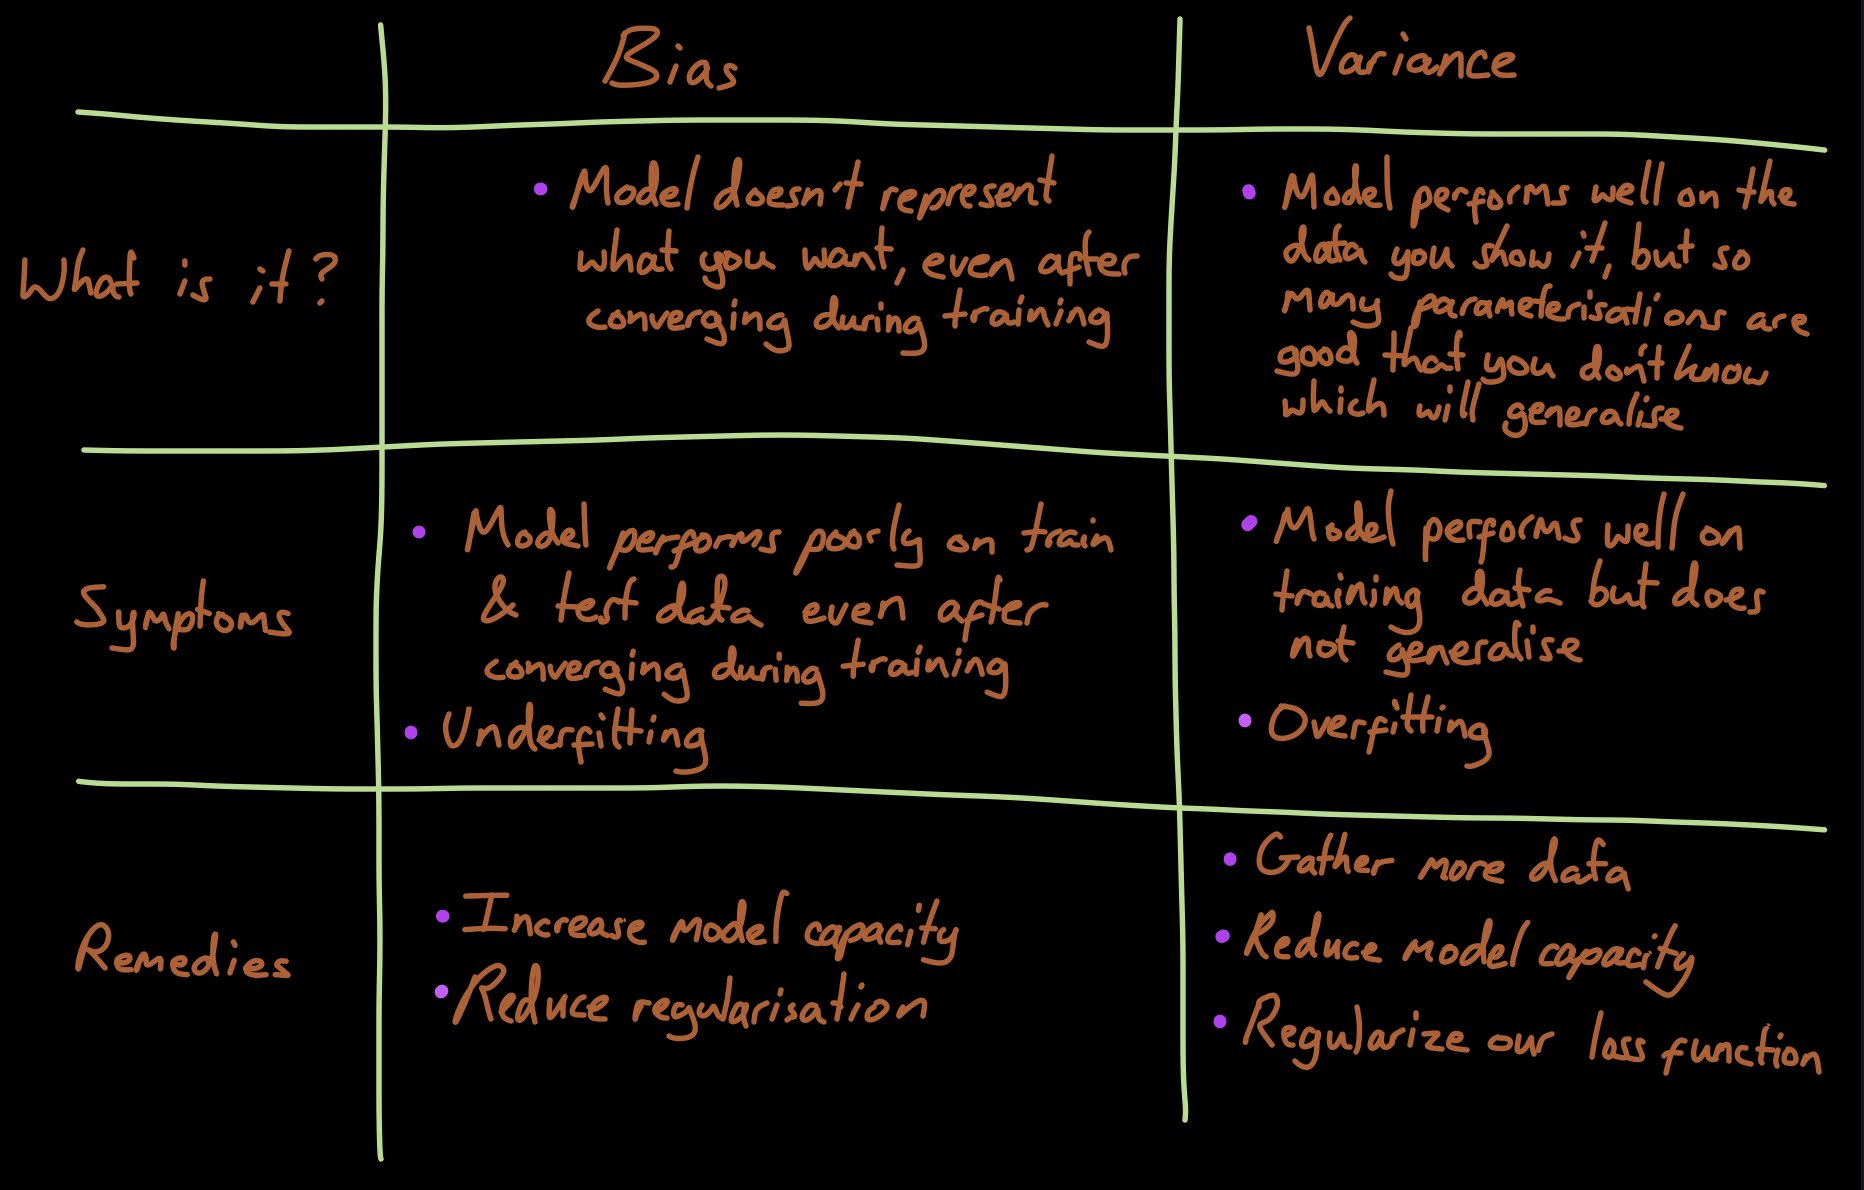 Bias
Variance
What is it?
• Model doesn't represent
what you want, even after
converging during training
• Model performs well on the
data you show it, but so
many parameterisations are
good that you don't know
which will generalise
Symptoms
• Model performs poorly on train
& test data even after
converging during training
• Underfitting
• Model performs well on
training data but does
not generalise
• Overfitting
Remedies
• Increase model capacity
• Reduce regularisation
• Gather more data
• Reduce model capacity
• Regularize our loss function